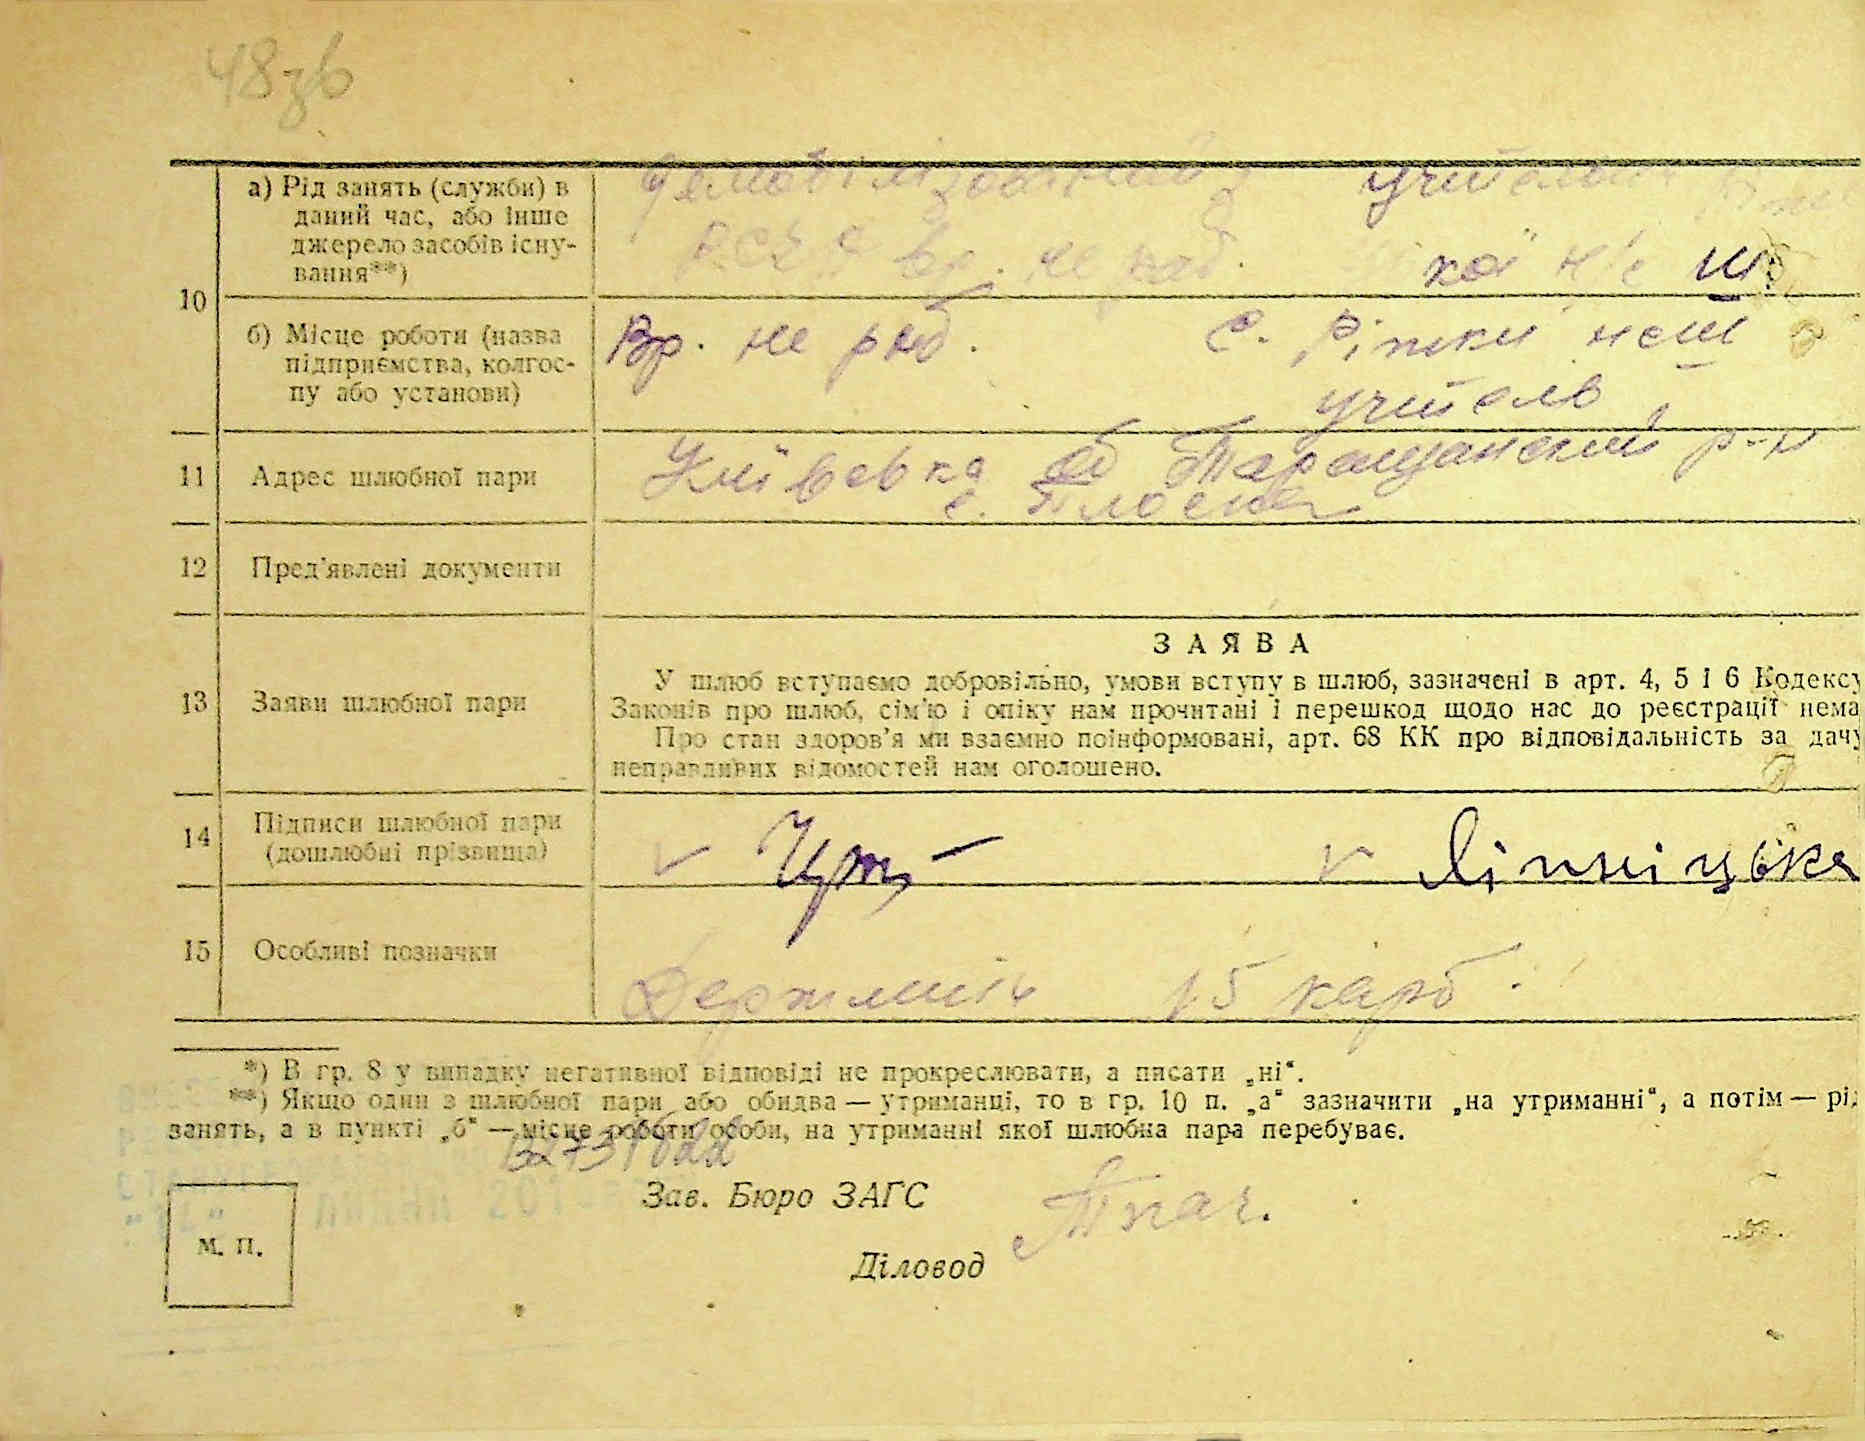 48зв
а) Рід занять (служби) в
даний час, або інше
джерело засобів існу-
вання**)
учитель
ш.
10
б) Місце роботи (назва
підприємства, колгос-
пу або установи)
Вр. не раб. с. Ріжки нсш
учитель
11 Адрес шлюбної пари
Київська об Таращанский р-н
с. Плоска
12 Пред'явлені документи
13 Заяви шлюбної пари
ЗАЯВА
У шлюб вступаємо добровільно, умови вступу в шлюб, зазначені в арт. 4, 5 і 6 Кодексу
Законів про шлюб, сім'ю і опіку нам прочитані і перешкод щодо нас до реєстрації нема
Про стан здоров'я ми взаємно поінформовані, арт. 68 КК про відповідальність за дачу
неправливих відомостей нам оголошено.
14 Підписи шлюбної пари
(дошлюбні прізвища)
Ліпніцька
15 Особливі позначки
Держмито 15 карб.
*) В гр. 8 у випадку негативної відповіді не прокреслювати, а писати „ні“.
**) Якщо один з шлюбної пари або обидва — утриманці, то в гр. 10 п. „а“ зазначити „на утриманні“, а потім — рід
занять, а в пункті „б“ — місце роботи особи, на утриманні якої шлюбна пара перебуває.
Зав. Бюро ЗАГС Ткач.
М. П.
Діловод